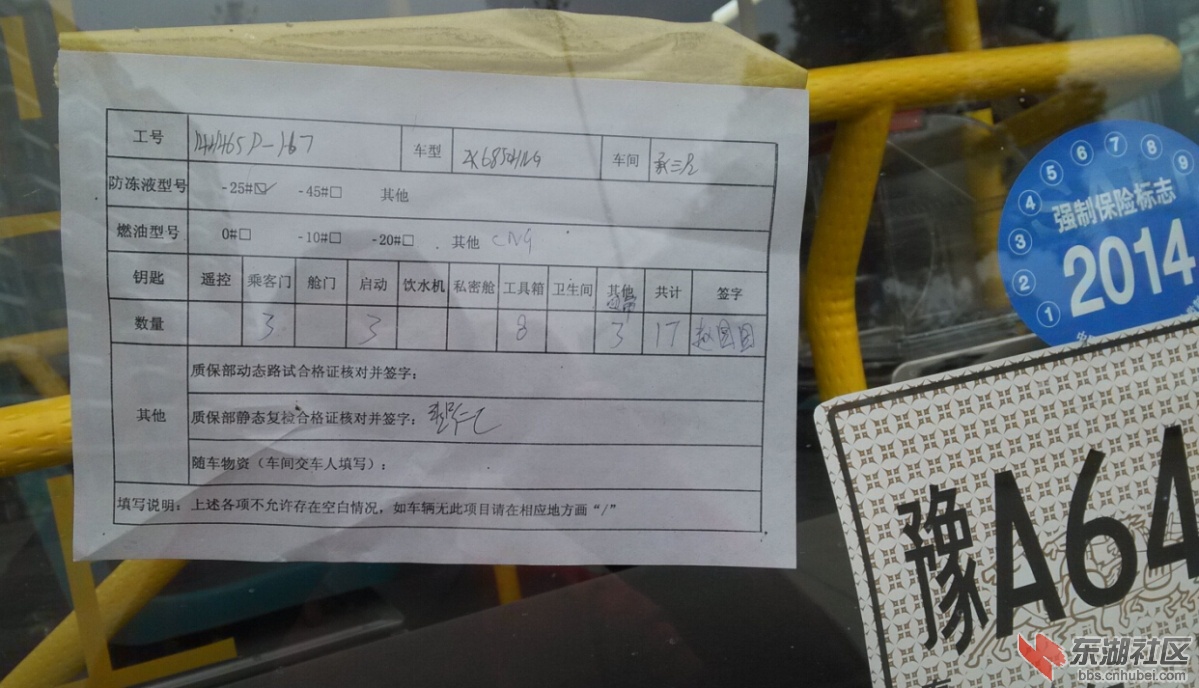 工号 车型 车间
防冻液型号 -25#☑ -45#□ 其他
燃油型号 0#□ -10#□ -20#□ 其他 CNG
钥匙 遥控 乘客门 舱门 启动 饮水机 私密舱 工具箱 卫生间 其他 共计 签字
数量 3 3 8 3 17 赵圆圆
其他
质保部动态路试合格证核对并签字：
质保部静态复检合格证核对并签字：
随车物资（车间交车人填写）：
填写说明：上述各项不允许存在空白情况，如车辆无此项目请在相应地方画“/”
1 2 3 4 5 6 7 8 9
强制保险标志
2014
豫A64
东湖社区
bbs.cnhubei.com